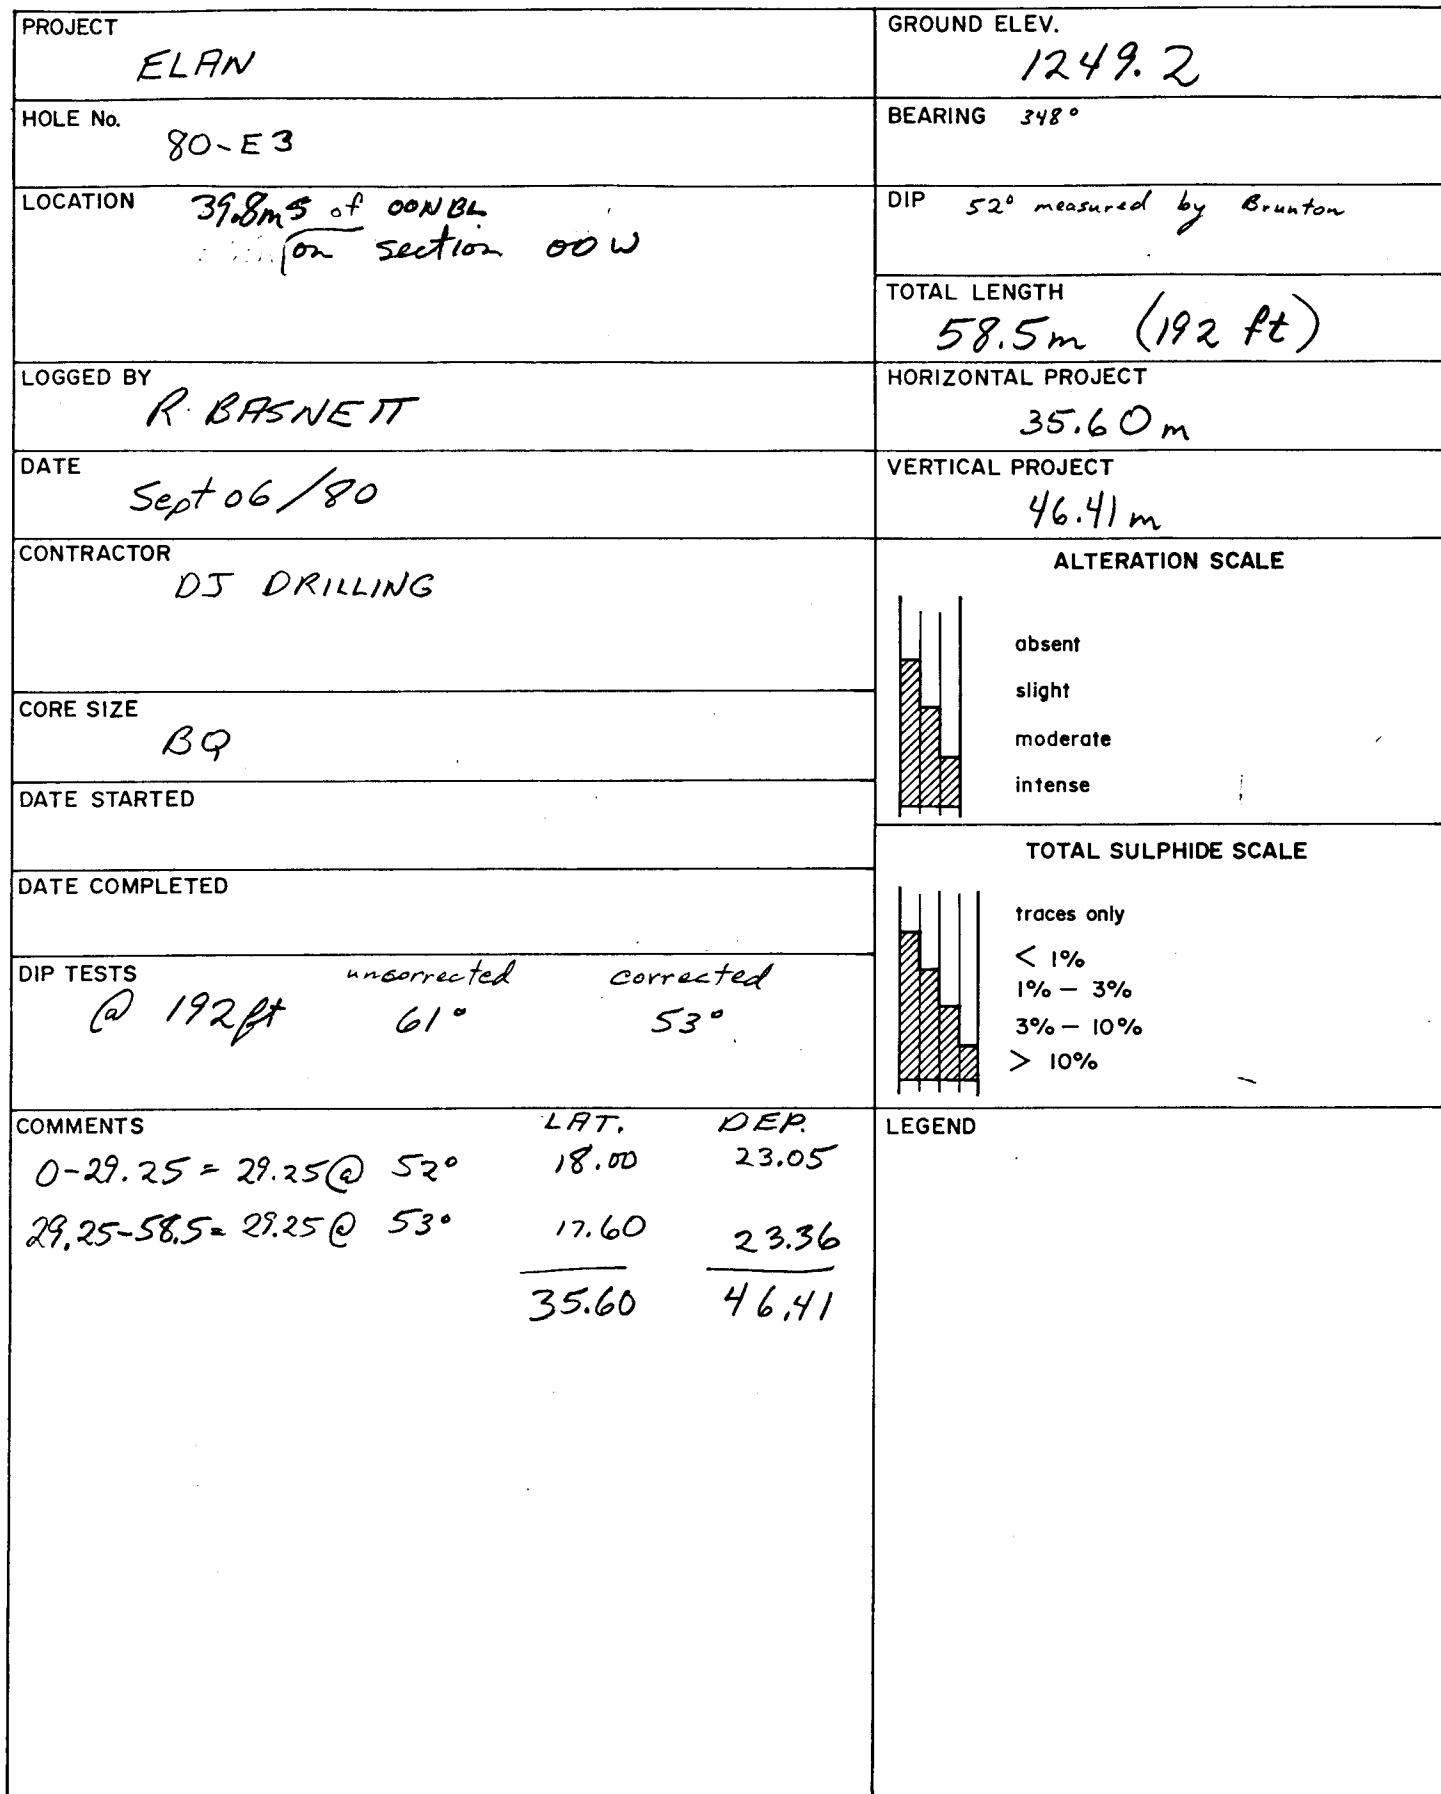 PROJECT
ELAN
HOLE No.
80-E3
LOCATION
39.8m S of OONBL
on section OOW
LOGGED BY
R. BASNETT
DATE
Sept 06/80
CONTRACTOR
DJ DRILLING
CORE SIZE
BQ
DATE STARTED
DATE COMPLETED
DIP TESTS uncorrected corrected
@ 192 ft 61° 53°
COMMENTS LAT. DEP.
0-29.25 = 29.25 @ 52° 18.00 23.05
29.25-58.5 = 29.25 @ 53° 17.60 23.36
35.60 46.41
GROUND ELEV.
1249.2
BEARING 348°
DIP 52° measured by Brunton
TOTAL LENGTH
58.5m (192 ft)
HORIZONTAL PROJECT
35.60 m
VERTICAL PROJECT
46.41 m
ALTERATION SCALE
absent
slight
moderate
intense
TOTAL SULPHIDE SCALE
traces only
< 1%
1% – 3%
3% – 10%
> 10%
LEGEND